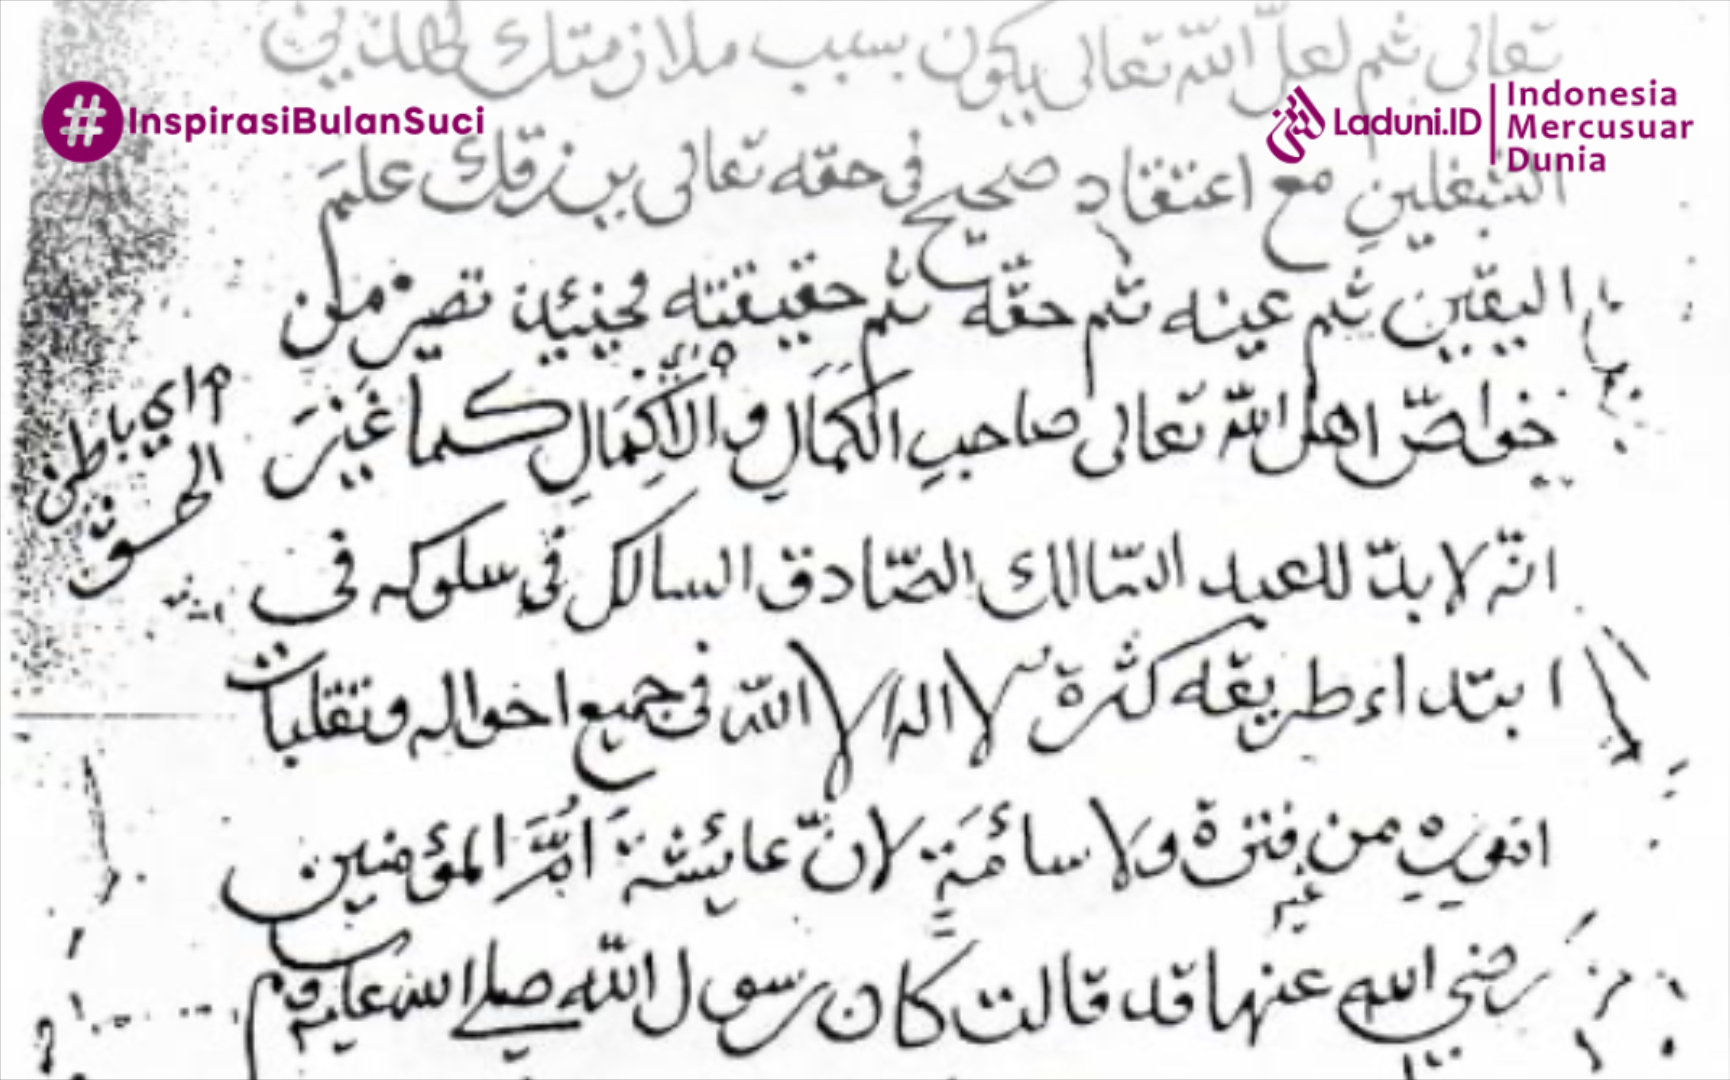 تعالى ثم لعلّ الله تعالى يكون بسبب ملازمتك لهذين
#InspirasiBulanSuci
Laduni.ID
Indonesia
Mercusuar
Dunia
الشغلين مع اعتقاد صحيح في حقه تعالى يرزقك علمَ
اليقين ثم عينه ثم حقّه ثم حقيقته فحينئذ تصير من
خواصّ اهل الله تعالى صاحبِ الكَمَالِ والْاِكْمَالِ كما غَيْرَ
م اي باطن
الحق
انّه لا بدّ للعبد السّالك الصّادق السالك في سلوكه في
ابتداء طريقه كثرة لا اله الا الله في جميع احواله وتقلبات
من غير فترة ولا سائمَةٍ لانّ عائشة اُمَّ المؤمنين
رضي الله عنها قد قالت كان رسول الله صلى الله عليه وسلم